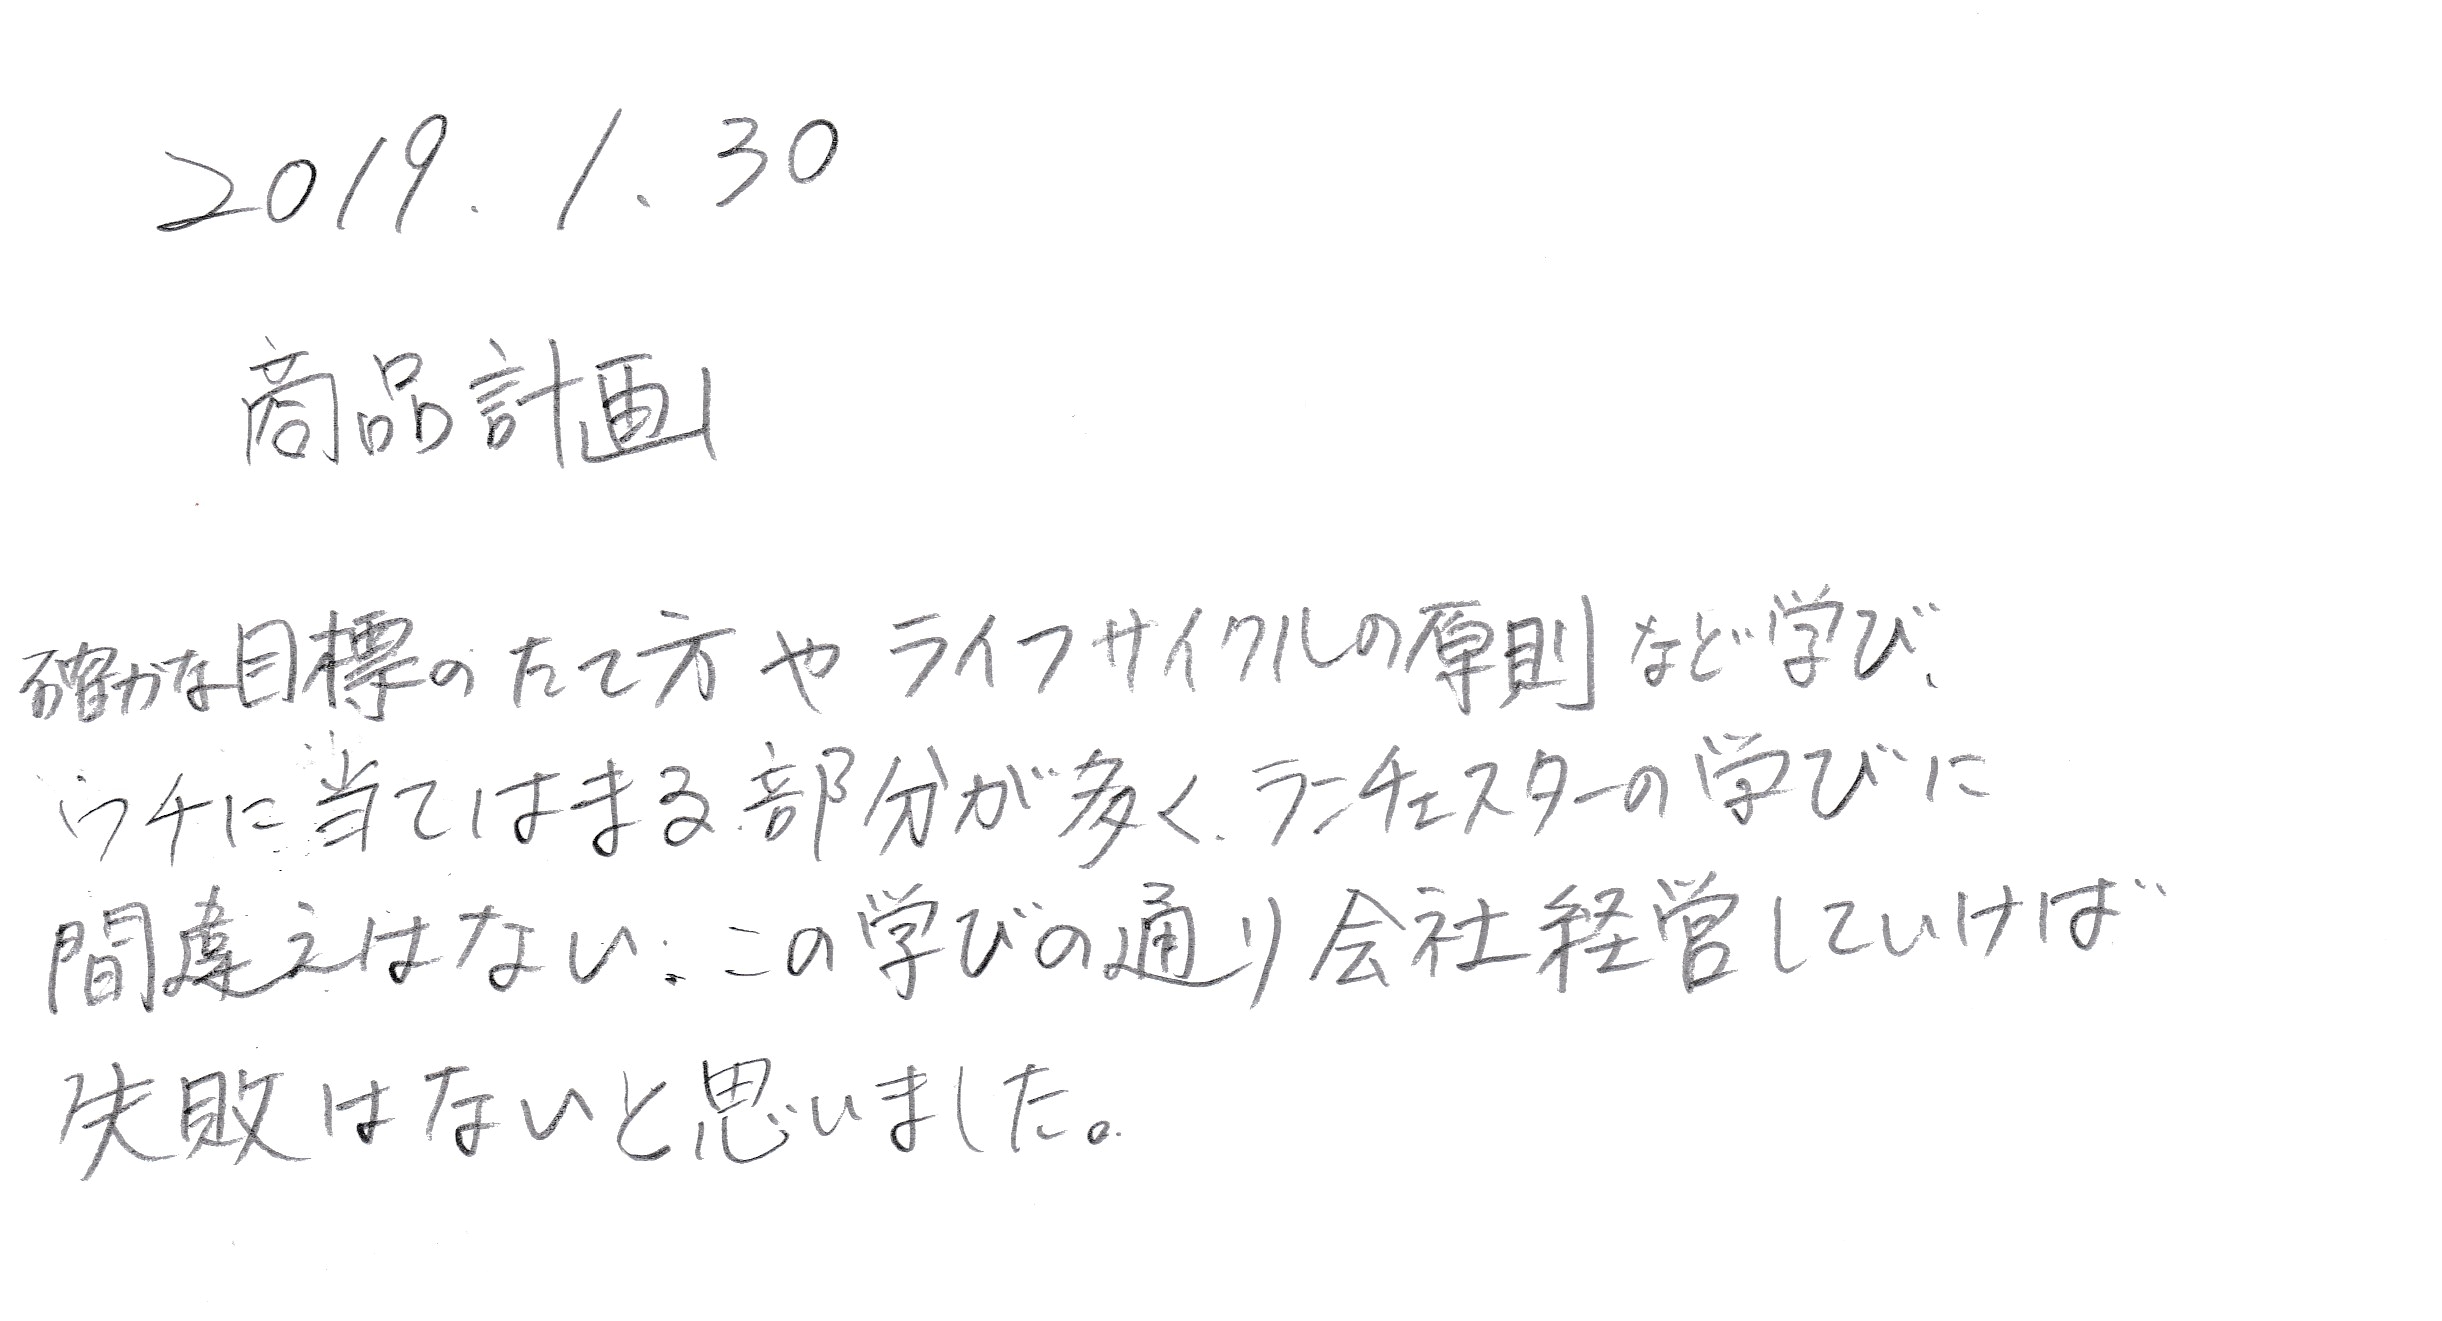 2019.1.30
商品計画
確かな目標のたて方やライフサイクルの原則など学び、
ウチに当てはまる部分が多く、ランチェスターの学びに
間違えはない、この学びの通り会社経営していけば
失敗はないと思いました。